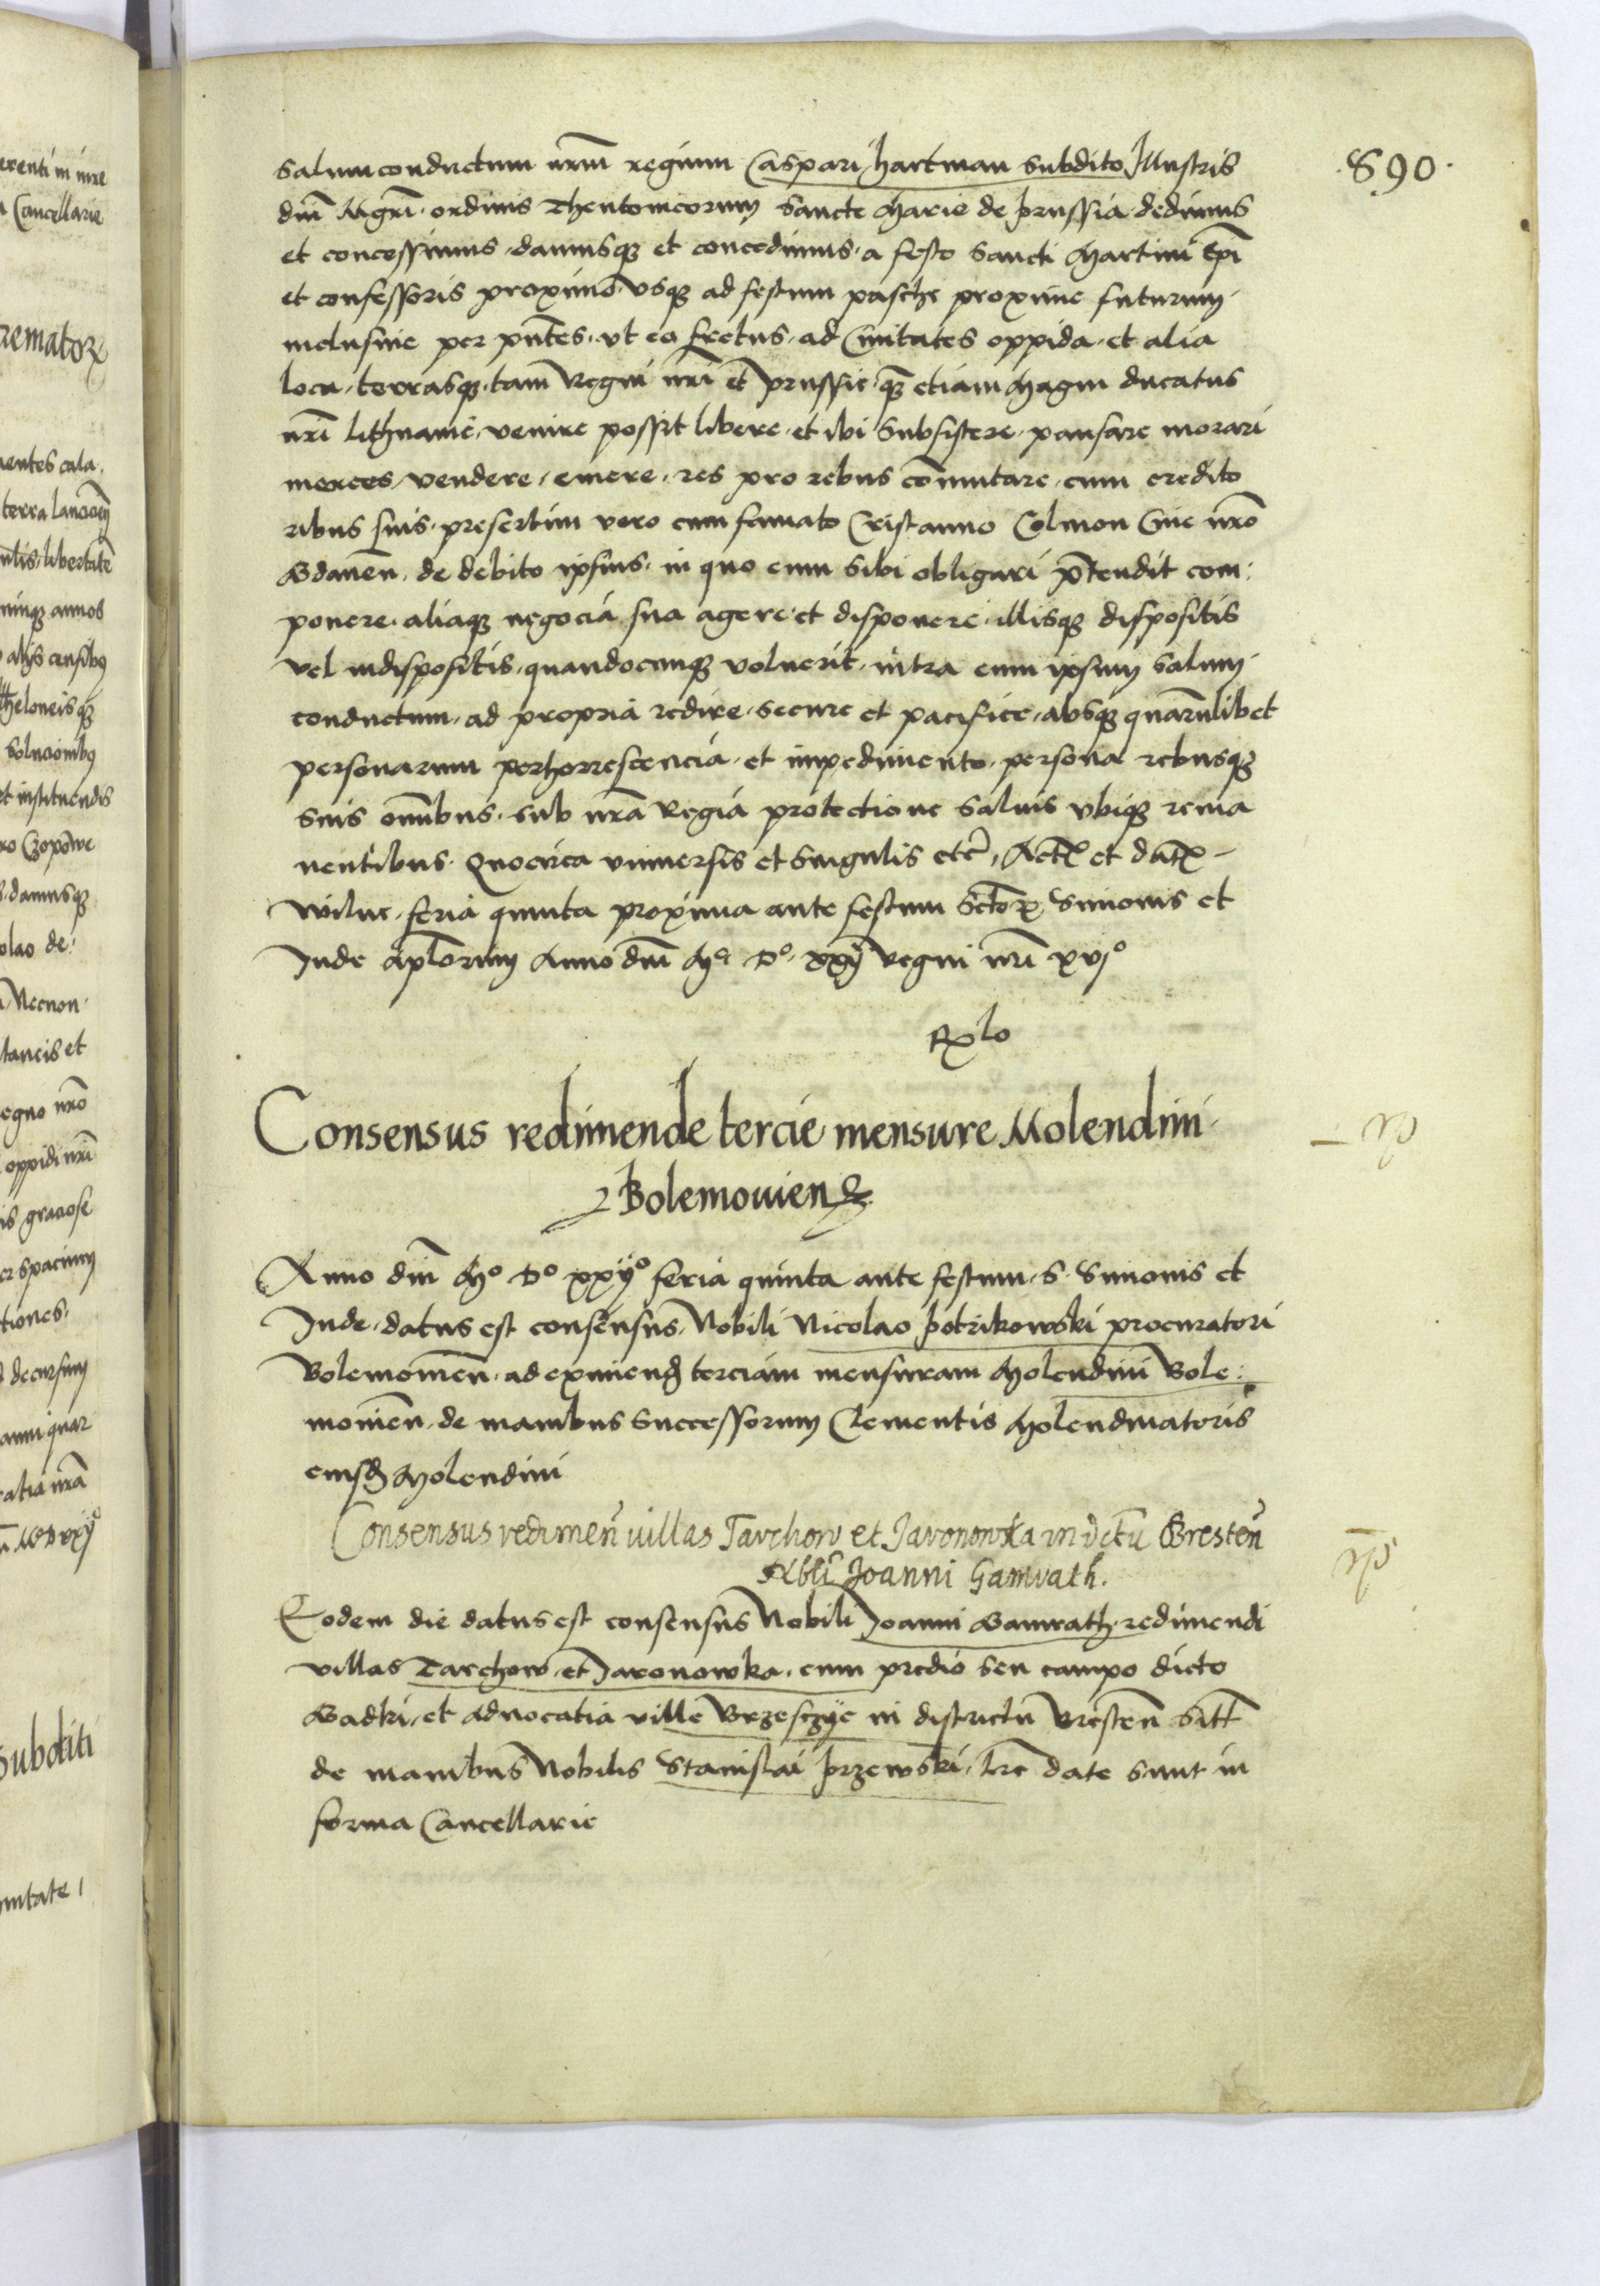 890.
saluumconductum nrm̄ regium Caspari hartman subdito Illustris
dnī Mgrī ordinis Theutonicorum Sancte Marie de prussia dedimus
et concessimus, damusq̃ et concedimus, a festo Sancti Martini Epī
et confessoris proximo vsq̃ ad festum pasche proxime futurum
inclusiue per pn̄tes, vt eo fretus, ad Ciuitates oppida, et alia
loca, terrasq̃, tam Regni nrī et prussie, q̃ etiam Magni ducatus
nrī Lithuanie, venire possit libere, et ibi subsistere, pausare morari
merces vendere, emere, res pro rebus com̄utare, cum credito
ribus suis, presertim vero cum famato Cristanno Colmon Ciue nrō
Gdanen̄, de debito ipsius, in quo eum sibi obligari p̄tendit com:
ponere, aliaq̃ negocia sua agere et disponere, illisq̃ dispositis
vel indispositis, quandocunq̃ voluerit, intra eum ipsum saluum
conductum, ad propria redire, secure et pacifice, absq̃ quarumlibet
personarum perhorrescencia, et impedimento, persona rebusq̃
suis om̄ibus, sub nrā Regia protectione saluis vbiq̃ rema
nentibus. Quocirca vniuersis et singulis etc̄, Act̄ et dat̄
wilne, feria quinta proxima ante festum Sctōꝝ Simonis et
Jude aplōrum Anno dnī Mº Dº xxij Regni nrī xvjº
Consensus redimende tercie mensure Molendini
Bolemouien̄
Anno dnī Mº Dº xxijº feria quinta ante festum S. Simonis et
Jude, datus est consensus Nobili Nicolao potrikowski procuratori
Bolemouien̄, ad eximend̄ terciam mensuram Molendini Bole:
mouien̄, de manibus Successorum Clementis Molendinatoris
eiusd̄ Molendini
Consensus redimen̄ villas Tarchow et Jaronowka in dctū Bresten̄
Nbli Joanni Gamrath.
Eodem die datus est consensus Nobili Joanni Gamrath, redimendi
villas Tarchow et Jaronowka, cum predio seu campo dicto
Gadki, et aduocatia ville Brzesczye in districtu Bresten̄ Sitt̄
de manibus Nobilis Stanislai przewski, lrē date sunt in
forma Cancellarie